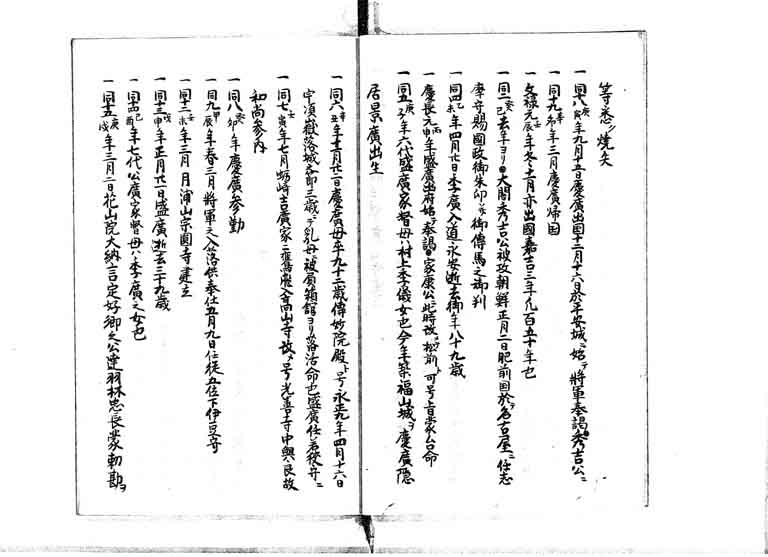 等悉ク焼失
一同十八庚寅年九月十五日慶廣出国十二月十六日於平安城ニ始テ将軍奉謁秀吉公ニ
一同十九辛卯年三月慶廣帰国
一文禄元壬辰年冬十一月亦出國嘉吉三年凡百五十年也
一同二癸巳去年ヨリ大閤秀吉公被攻朝鮮正月二日肥前国於テ名古屋ニ任志
摩守賜國政御朱印ニ御傳馬之御判
一同四乙未年四月廿日季廣入道永安逝去御年八十九歳
一慶長元丙申年盛廣出府始テ奉謁家康公ニ此時改松前ト可号旨蒙台命
一同五庚子年六代盛廣家督母ハ村上季儀女也今年築福山城ヲ慶廣隠
居景廣出生
一同六辛丑年十二月廿一日慶廣母卒九十二歳偉妙院殿ト号永正九年四月十六日
宇須嶽落城之節三歳ニテ乳母ニ被負箱舘ヨリ落活命也盛廣任若狭守ニ
一同七壬寅年七月蛎崎吉廣家ニ舊應入高山寺改メ号光善寺中興良故
和尚参内
一同八癸卯年慶廣参勤
一同九甲辰年春三月将軍之入洛供奉仕五月九日任従五位下伊豆守
一同十二丁未年三月月浦山宗圓寺建立
一同十三戊申年正月廿一日盛廣逝去三十九歳
一同十四己酉年七代公廣家督母ハ季廣之女也
一同十五庚戌年三月二日花山院大納言定好郷之公達羽林忠長蒙勅勘ヲ